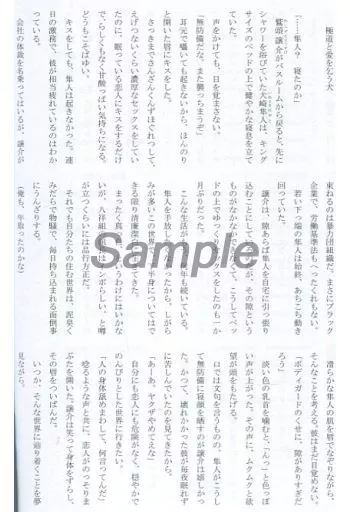 極道と愛を乞う犬
「……隼人? 寝たのか」
鷲頭譲介がバスルームから戻ると、先に
シャワーを浴びていた犬崎隼人は、キング
サイズのベッドの上で健やかな寝息を立て
ていた。
声をかけても、目を覚まさない。
「無防備だな、また襲っちまうぞ」
耳元で囁いても起きないから、ほんのり
と開いた唇にキスをした。
さっきまでさんざんくんずほぐれつして、
えげつないくらい濃厚なセックスをしていた
のに、眠っている恋人にキスをするだけ
で、らしくもなく甘酸っぱい気持ちになる。
どうもこそばゆい。
キスをしても、隼人は起きなかった。連
日の激務で、彼が相当疲れているのはわか
っている。
会社の体裁を名乗ってはいるが、譲介が
束ねるのは暴力団組織だ。まさにブラック
企業で、労働基準法もへったくれもない。
若い下っ端の隼人は始終、あちこち動き
回っていた。
譲介は、隙あらば隼人を自宅に引っ張り
込むことにしているが、その隙という
ものがなかなか
ドの上でゆっくり
月ぶりだった。
こんな生活が
隼人を手放し
みが多いこの世界
きる限り清廉潔
まったく真っ
いが、八祥組
が立つくらいには品行方正だ。
それでも自分たちの住む世界は、泥臭く
みだらで物騒で、毎日持ち込まれる面倒事
にうんざりする。
(俺も、年取ったのかな)
滑らかな隼人の肌を唇でなぞりながら、
そんなことを考える。彼はまだ目覚めない。
「ボディガードのくせに、隙がありすぎだ
ろう」
淡い色の乳首を噛むと、「んっ」と色っぽ
い声が上がった。その声に、ムクムクと欲
望が頭をもたげる。
口では文句を言うものの、隼人がこうし
て無防備に寝顔を晒すのが譲介は嬉しかっ
た。かつて、壊れかかった彼が毎夜眠れず
に苦しんでいたのを見てきたから。
「あーあ、ヤクザやめてえな」
自分にも恋人にも危険がなく、穏やかで
のんびりとした世界に行きたい。
「人の身体舐めまわして、何言ってんだ」
唸るような声と共に、恋人がのっそりま
ぶたを開いた。譲介は笑って身体をずらし、
その唇をついばんだ。
いつか、そんな世界に辿り着くことを夢
見ながら。
Sample